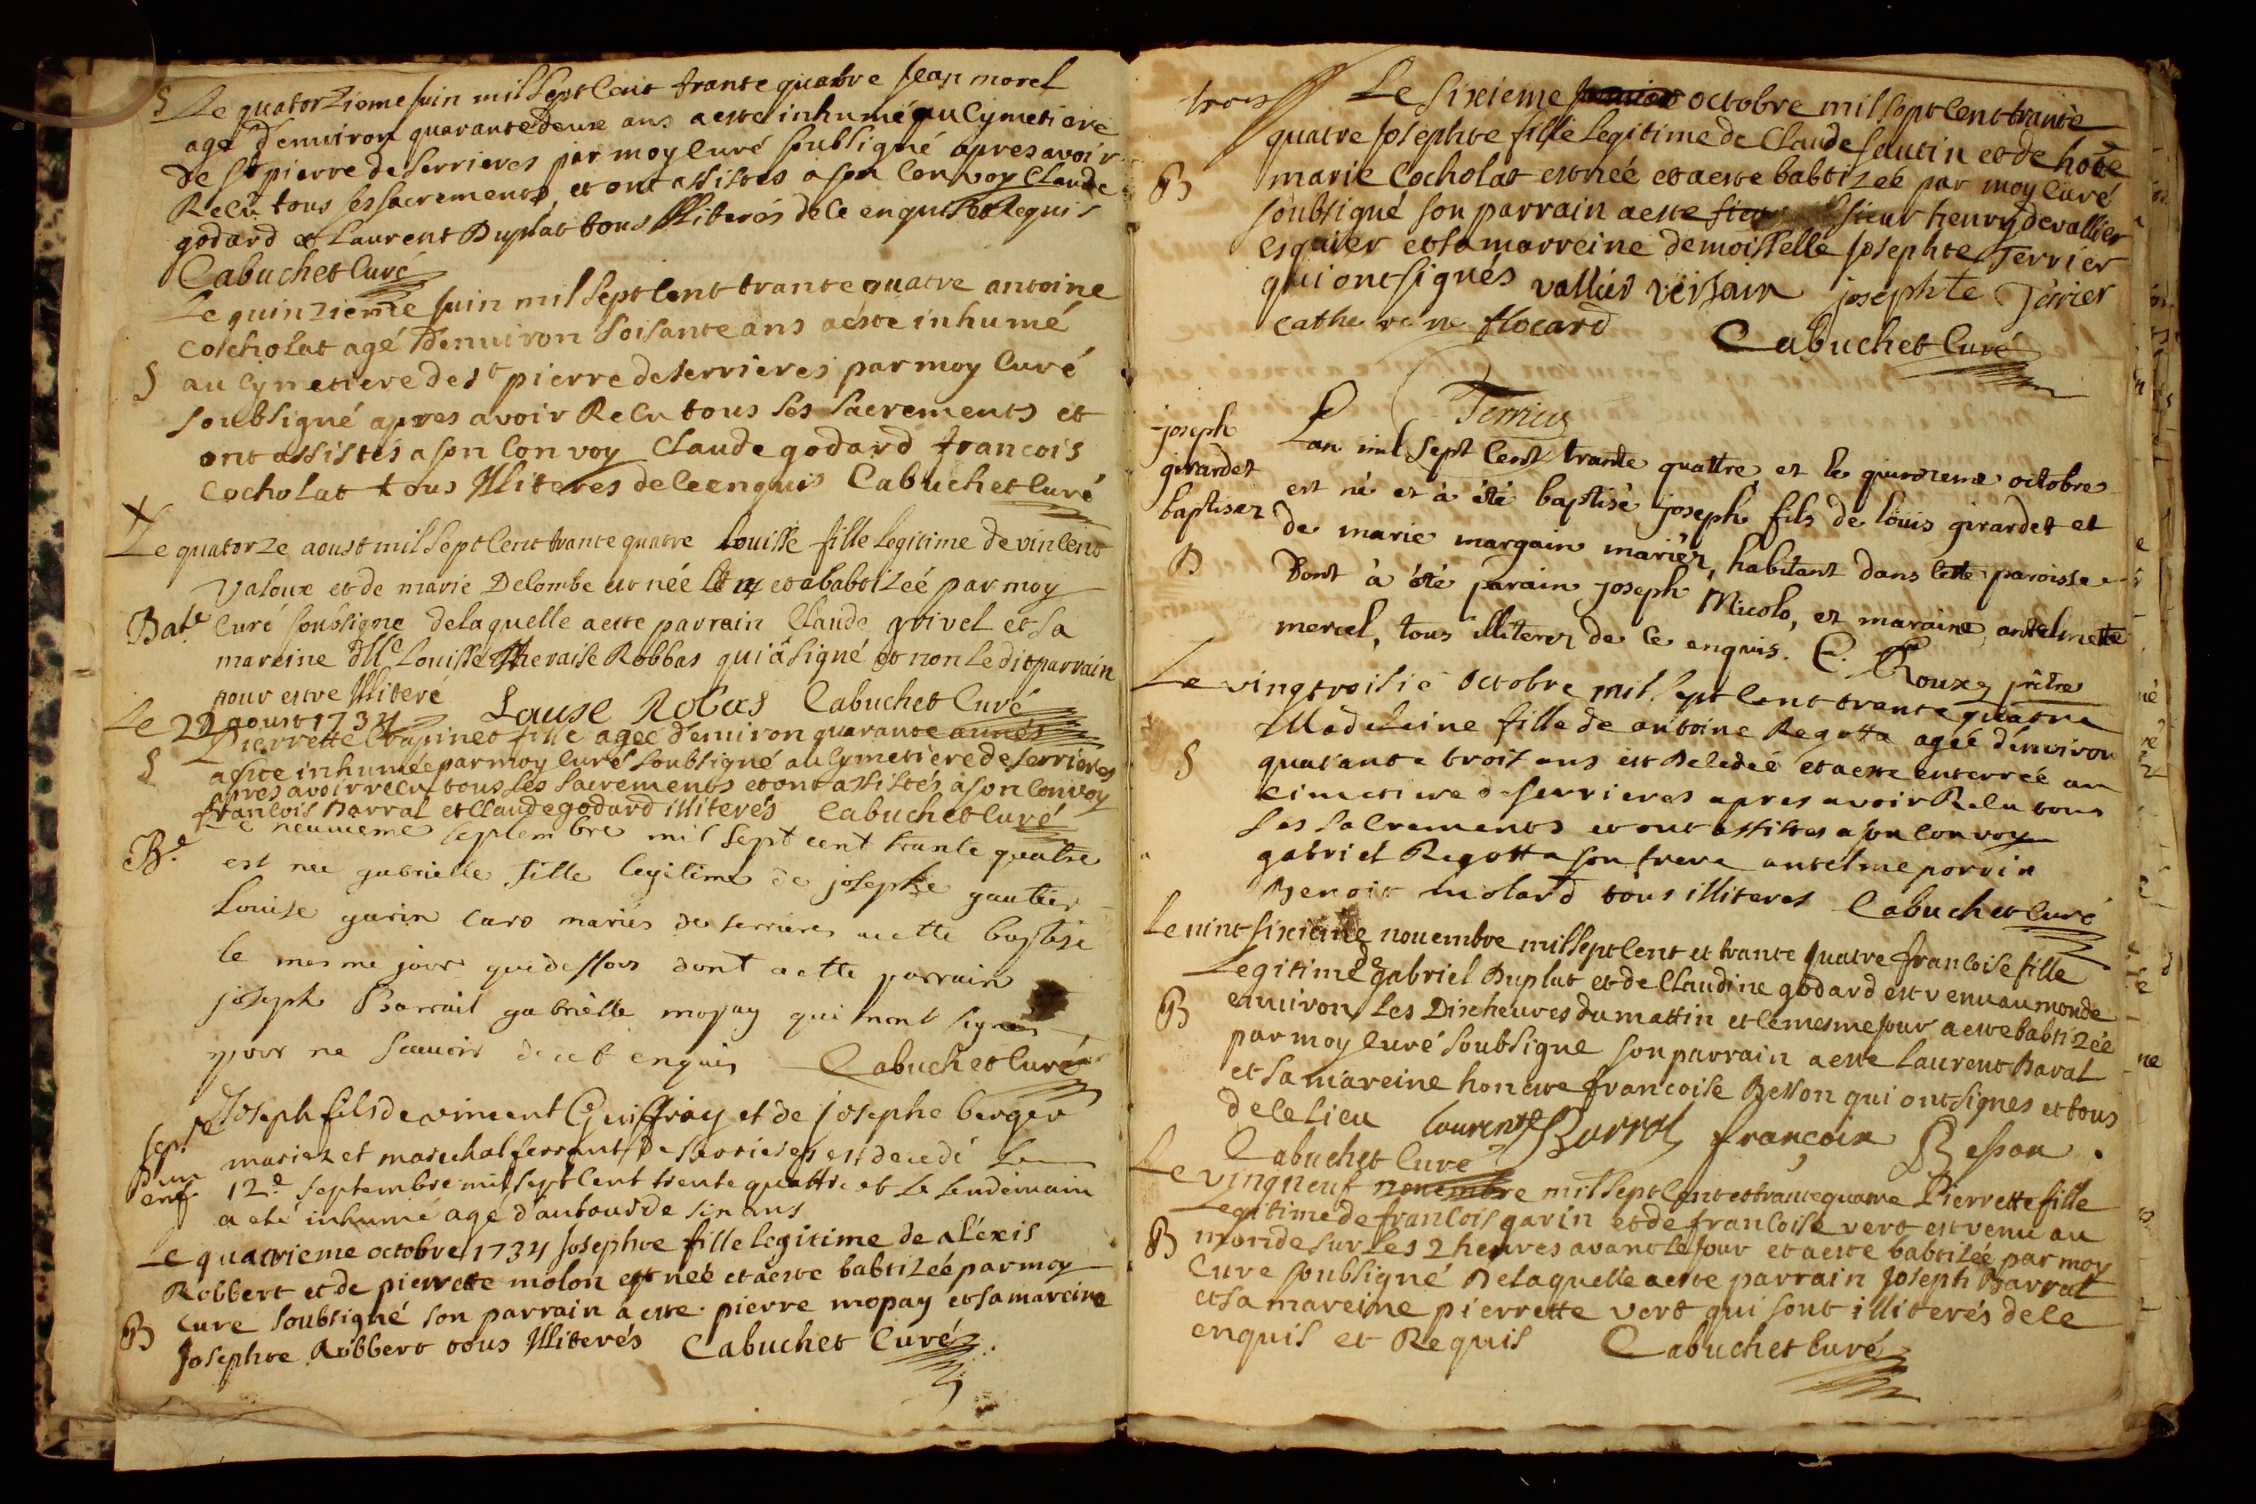 S Le quatorzieme Juin mil Sept Cent trante quatre Jean morel
agé d'enuiron quarante deux ans a este inhumé au Cymetiere
de St pierre de Serrieres par moy Curé soubsigné apres avoir
Receu tous ses sacrements, et ont assistés a son Convoy Claude
godard et Laurent Duplat tous Illiterés de ce enquis et Requis
Cabuchet Curé
Le quinzieme Juin mil Sept Cent trante quatre antoine
Coscholat agé d'enuiron soisante ans a este inhumé
S au Cymetiere de St pierre de serrieres par moy Curé
soubsigné apres avoir Recu tous ses sacrements et
ont assistés a son Convoy Claude godard francois
Cocholat tous Illiteres de ce enquis Cabuchet Curé
X
Le quatorze aoust mil Sept Cent trante quatre Louisse fille legitime de vincent
valoux et de marie Delombe est née le 14 et a babtizeé par moy
Bate Curé soubsigne de laquelle a este parrain Claude grivel et sa
mareine dlle Louisse Theraise Robbas qui à signé et non le dit parrain
pour estre Illiteré Lauise Robas Cabuchet Curé
Le 22 aoust 1734
Pierrette fille agee d'enuiron quarante année
S a este inhumée par moy Curé soubsigné au Cymetiere de serrieres
apres avoir recu tous les sacrements et ont assistés à son Convoy
francois Barral et Claude godard illiterés Cabuchet Curé
Be Le neuuieme septembre mil sept cent trante quatre
est née gabrielle fille legitime de josephe gautier
Louise garin Caro mariés de serrieres a ette baptisé
le mesme jour que dessous dont a ette parrain
joseph Barrail gabrielle mopay qui n'ont signer
pour ne scauoir de cet enquis Cabuchet Curé
Joseph fils de vincent Guiffray et de josephe berger
sepre d'un enf. mariez et marechal ferrant de serrieres est decedé Le
12e septembre mil sept Cent trente quattre et Le Lendemain
a eté inhumé age d'autour de six ans
Le quatrieme octobre 1734 Josephte fille legitime de aléxis
Robbert et de pierrette molon est neé et a este babtizéé par moy
B Cure soubsigné son parrain a este pierre mopay et sa mareine
Josephte Robbert tous Illiterés Cabuchet Curé
trois Le Sixieme octobre mil sept Cent trante
quatre Josephte fille legitime de Claude Seutin et de hote
B marie Cocholat est neé et a este babtizeé par moy Curé
soubsigné son parrain a este sieur henry de vallier
esquier et sa marreine demoisselle Josephte Terrier
qui ont signés vallier josephte Tèrier
catherine flocard Cabuchet Curé
Terrier
joseph girardet baptiser L'an mil sept Cent trante quattre, et le quinzieme octobre
est né et à été baptisé joseph fils de loüis girardet et
de marie margain mariér, habitant dans cette paroisse
B Dont à été parain joseph Micolo, et maraine antelmette
mercel, tous illiterez de ce enquis. C. Roux prêtre
Le vingtroisie octobre mil sept Cent trante quatre
Madeleine fille de antoine Regotta agée d'enuiron
S quarante trois ans est Decedeé et a este enterreé au
cimetiere de serrieres apres avoir Recu tous
Les sacrements et ont assistes a son Convoy
gabriel Regotta son frere antelme porrin
Benoit molard tous illiteres Cabuchet Curé
Le vint sixieme nouembre mil sept Cent et trante quatre francoise fille
Legitime de gabriel Duplat et de Claudine godard est venu au monde
B enuiron Les Dix heures du mattin et le mesme Jour a este babtizéé
par moy Curé soubsigne son parrain a este Laurent Baral
et sa mareine honeste francoise Besson qui ont signes et tous
de ce Lieu laurent Barral françoise Besson.
Cabuchet Cure
Le vingneuf nouembre mil sept Cent et trante quatre Pierrette fille
Legitime de francois garin et de francoise vert est venu au
B monde sur Les 2 heures avant le Jour et a este babtizéé par moy
Cure soubsigné De laquelle a este parrain Joseph Barral
et sa mareine pierrette vert qui sont illiterés de ce
enquis et Requis Cabuchet Curé